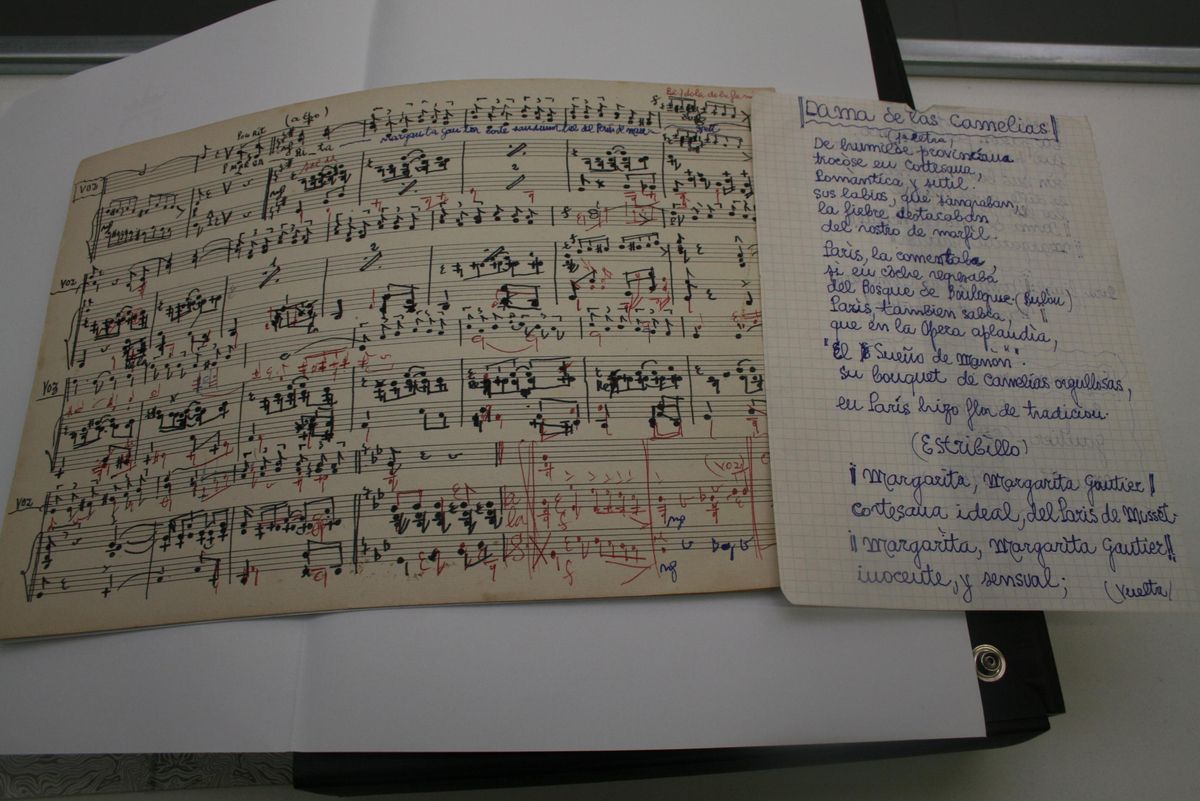 VOZ
(a tpo)
Margarita Gau tier
del París de Mu-
sset
VOZ
VOZ
VOZ
(voz)
mp
mp
¡Dama de las Camelias!
(1ª Letra)
De humilde provinciana
trocóse en cortesana,
Romántica y sutil.
sus labios, que sangraban,
la fiebre destacaban
del rostro de marfil.
París, la comentaba,
si en coche regresaba
del Bosque de Boulogne. (Bulón)
París también sabía,
que en la Opera aplaudía,
"El Sueño de Manón".
su bouquet de camelias orgullosas,
en París hizo flor de tradición.
(Estribillo)
¡Margarita, Margarita Gautier!
cortesana ideal, del París de Musset.
¡¡Margarita, Margarita Gautier!!
inocente, y sensual;
(vuelta)